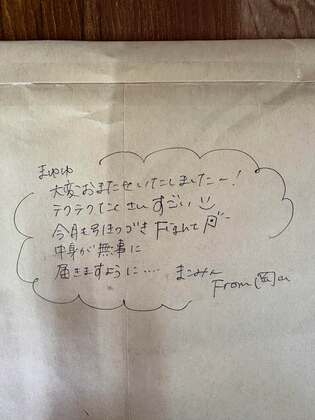 まゆゆ
大変おまたせいたしました〜!
テクテクたくさんすごい
今月も引きつづきFight
中身が無事に
届きますように....
まこみん
From 岡山